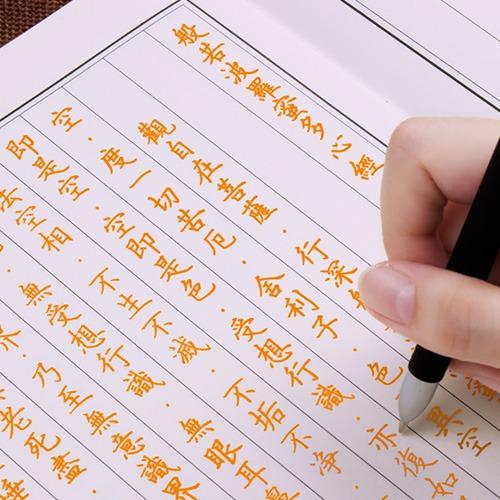 般若波羅蜜多心經
觀自在菩薩·行深
空·度一切苦厄·舍利子·色異空
即是空·空即是色·受想行識·亦復如
法空相·不生不滅·不垢不淨
無受想行識·無眼耳
界·乃至無意識界
老死盡